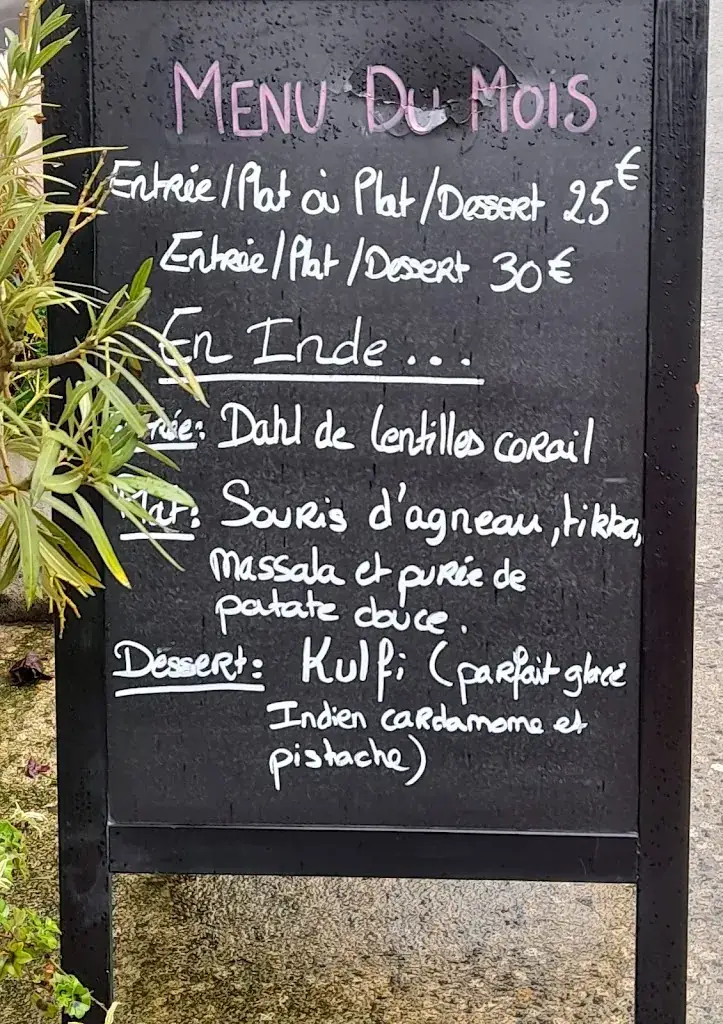 MENU DU MOIS
Entrée/Plat où Plat/Dessert 25€
Entrée/Plat/Dessert 30€
En Inde...
rée: Dahl de lentilles corail
Plat: Souris d'agneau, tikka,
massala et purée de
patate douce.
Dessert: Kulfi (parfait glacé
Indien cardamome et
pistache)